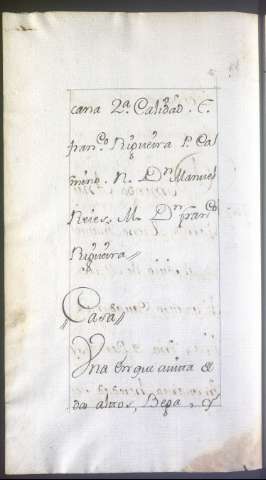 cana 2ª Calidad. E.
fran.co Nigueira P. Ca-
mino. N. D.n Manuel
Neies. M. D.n fran.co
Nigueira //
// Casa //
Una en que avita de
dos altos, Bega, y